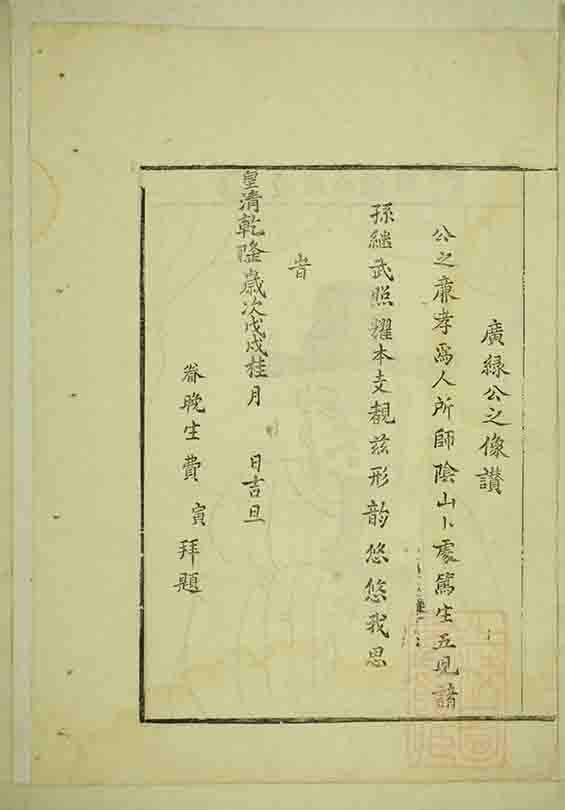 廣緑公之像讃
公之廉孝爲人所師陰山卜處篤生五兒諸
孫継武照耀本支覩兹形韵悠悠我思
旹
皇清乾隆歳次戊戍桂月 日吉旦
眷晚生費寅拜題